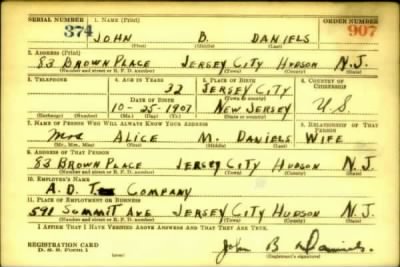 SERIAL NUMBER 1. NAME (Print) ORDER NUMBER
374 JOHN B. DANIELS 907
(First) (Middle) (Last)
2. ADDRESS (Print)
83 BROWN PLACE JERSEY CITY HUDSON N.J.
(Number and street or R. F. D. number) (Town) (County) (State)
3. TELEPHONE 4. AGE IN YEARS 5. PLACE OF BIRTH 6. COUNTRY OF CITIZENSHIP
32 JERSEY CITY
DATE OF BIRTH (Town or county)
10-25-1907 NEW JERSEY U.S.
(Exchange) (Number) (Mo.) (Day) (Yr.) (State or country)
7. NAME OF PERSON WHO WILL ALWAYS KNOW YOUR ADDRESS 8. RELATIONSHIP OF THAT PERSON
Mrs ALICE M. DANIELS WIFE
(Mr., Mrs., Miss) (First) (Middle) (Last)
9. ADDRESS OF THAT PERSON
83 BROWN PLACE JERSEY CITY HUDSON N.J.
(Number and street or R. F. D. number) (Town) (County) (State)
10. EMPLOYER'S NAME
A.D.T. COMPANY
11. PLACE OF EMPLOYMENT OR BUSINESS
591 SUMMIT AVE JERSEY CITY HUDSON N.J.
(Number and street or R. F. D. number) (Town) (County) (State)
I AFFIRM THAT I HAVE VERIFIED ABOVE ANSWERS AND THAT THEY ARE TRUE.
REGISTRATION CARD
D. S. S. Form 1 John B Daniels
(Registrant's signature)